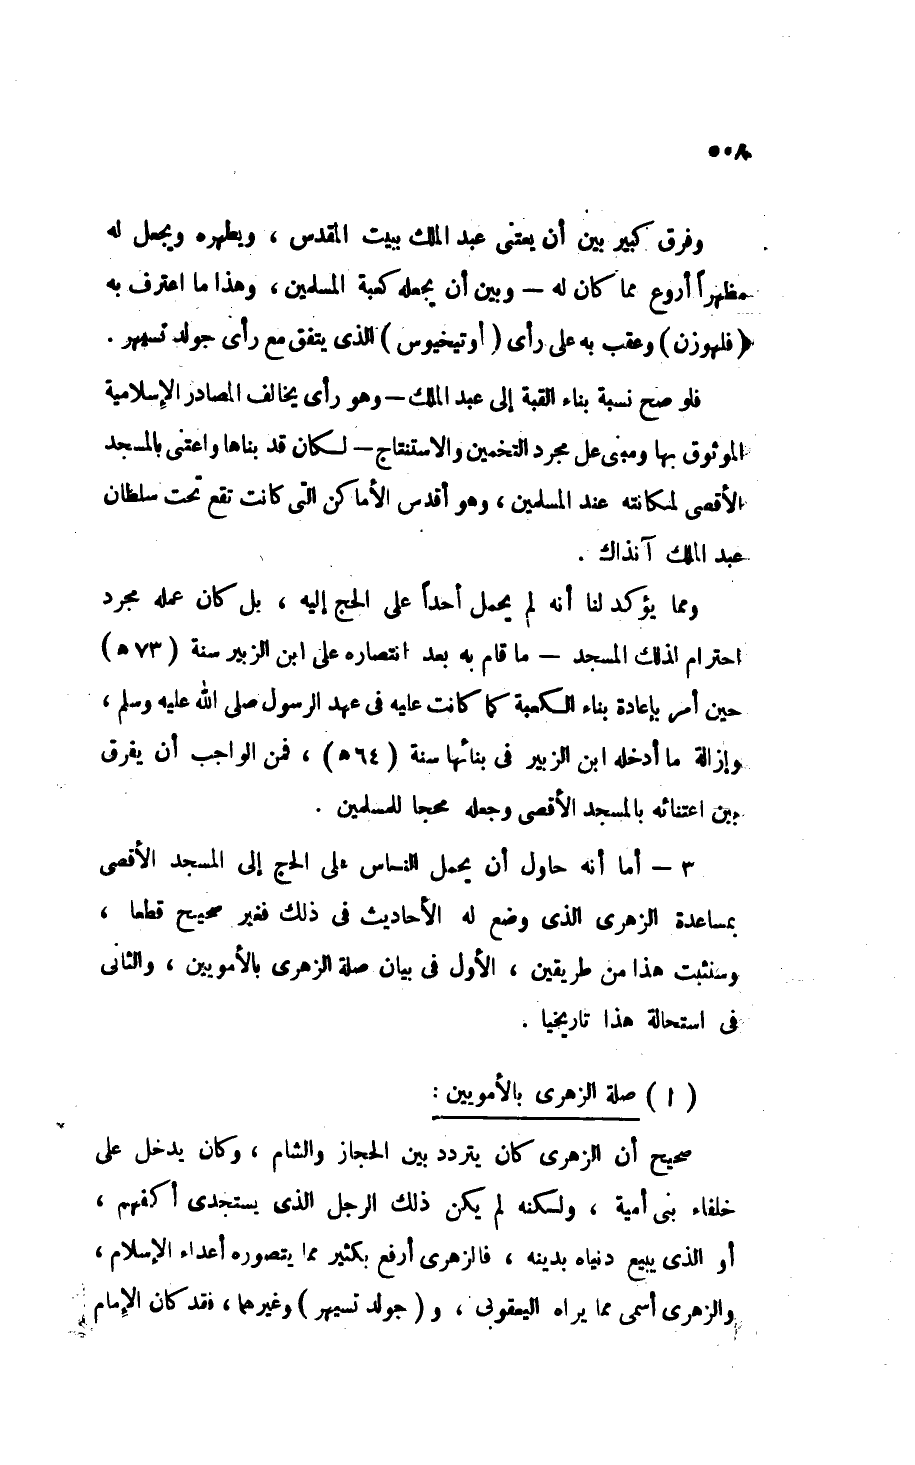 ٥٠٨
وفرق كبير بين أن يعتنى عبد الملك ببيت المقدس ، ويطهره ويجعل له
مظهراً أروع مما كان له — وبين أن يجعله كعبة المسلمين ، وهذا ما اعترف به
( فلهوزن ) وعقب به على رأى ( أوتيخيوس ) الذى يتفق مع رأى جولد تسيهر .
فلو صح نسبة بناء القبة إلى عبد الملك — وهو رأى يخالف المصادر الإسلامية
الموثوق بها ومبنى على مجرد التخمين والاستنتاج — لكان قد بناها واعتنى بالمسجد
الأقصى لمكانته عند المسلمين ، وهو أقدس الأماكن التى كانت تقع تحت سلطان
عبد الملك آنذاك .
ومما يؤكد لنا أنه لم يحمل أحداً على الحج إليه ، بل كان عمله مجرد
احترام لذلك المسجد — ما قام به بعد انتصاره على ابن الزبير سنة ( ٧٣ ه )
حين أمر بإعادة بناء الكعبة كما كانت عليه فى عهد الرسول صلى الله عليه وسلم ،
وإزالة ما أدخله ابن الزبير فى بنائها سنة ( ٦٤ ه ) ، فمن الواجب أن يفرق
بين اعتنائه بالمسجد الأقصى وجعله محجا للمسلمين .
٣ — أما أنه حاول أن يحمل الناس على الحج إلى المسجد الأقصى
بمساعدة الزهرى الذى وضع له الأحاديث فى ذلك فغير صحيح قطعا ،
وسنثبت هذا من طريقين ، الأول فى بيان صلة الزهرى بالأمويين ، والثانى
فى استحالة هذا تاريخيا .
( ا ) صلة الزهرى بالأمويين :
صحيح أن الزهرى كان يتردد بين الحجاز والشام ، وكان يدخل على
خلفاء بنى أمية ، ولكنه لم يكن ذلك الرجل الذى يستجدى أكفهم ،
أو الذى يبيع دنياه بدينه ، فالزهرى أرفع بكثير مما يتصوره أعداء الإسلام ،
والزهرى أسمى مما يراه اليعقوبى ، و ( جولد تسيهر ) وغيرهما ، فقد كان الإمام